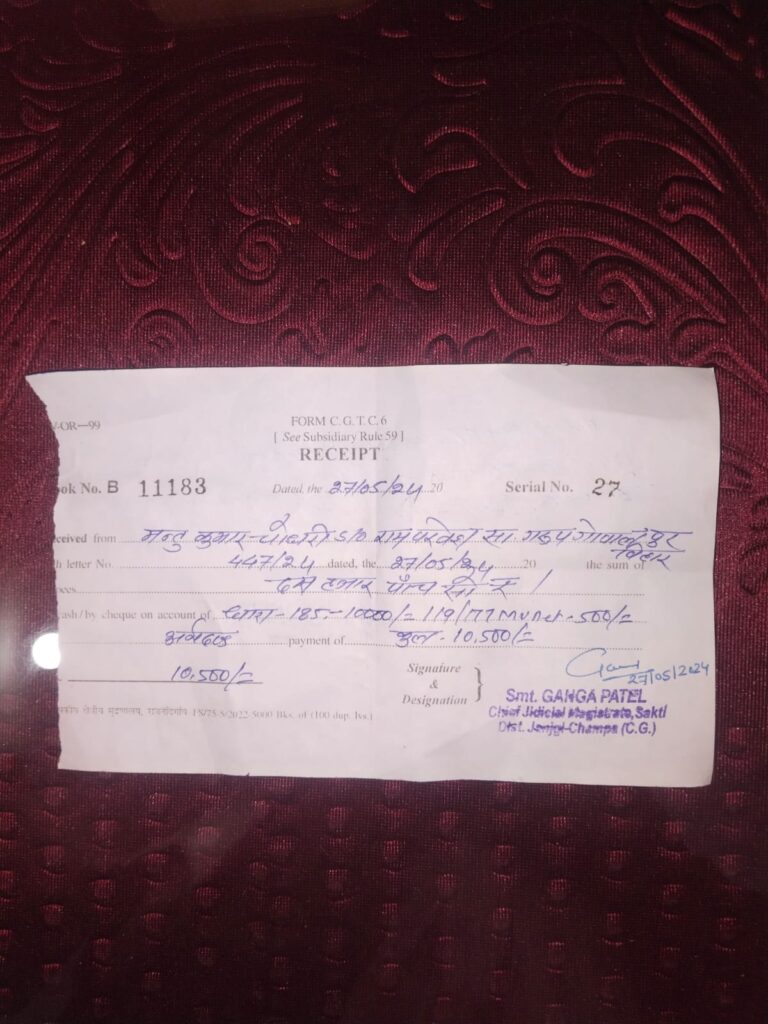 OR—99
FORM C. G. T. C. 6
[ See Subsidiary Rule 59 ]
RECEIPT
ok No. B 11183 Dated, the 27/05/24 20 Serial No. 27
ceived from मन्टु कुमार चौधरी S/o रामपरवेश सा.
बिहार
letter No. 447/24 dated, the 27/05/24 20 the sum of
ees दस हजार पाँच सौ रु /
cash/by cheque on account of धारा-185-10000/= 119/177 MV Act-500/=
अर्थदण्ड payment of कुल-10,500/=
10,500/=
Signature
&
Designation
27/05/2024
Smt. GANGA PATEL
Chief Jidicial Magistrate, Sakti
Dist. Janjgi-Champa (C.G.)
क्षेत्रीय मुद्रणालय, राजनांदगांव 2022-5000 Bks. of (100 dup. lvs.)